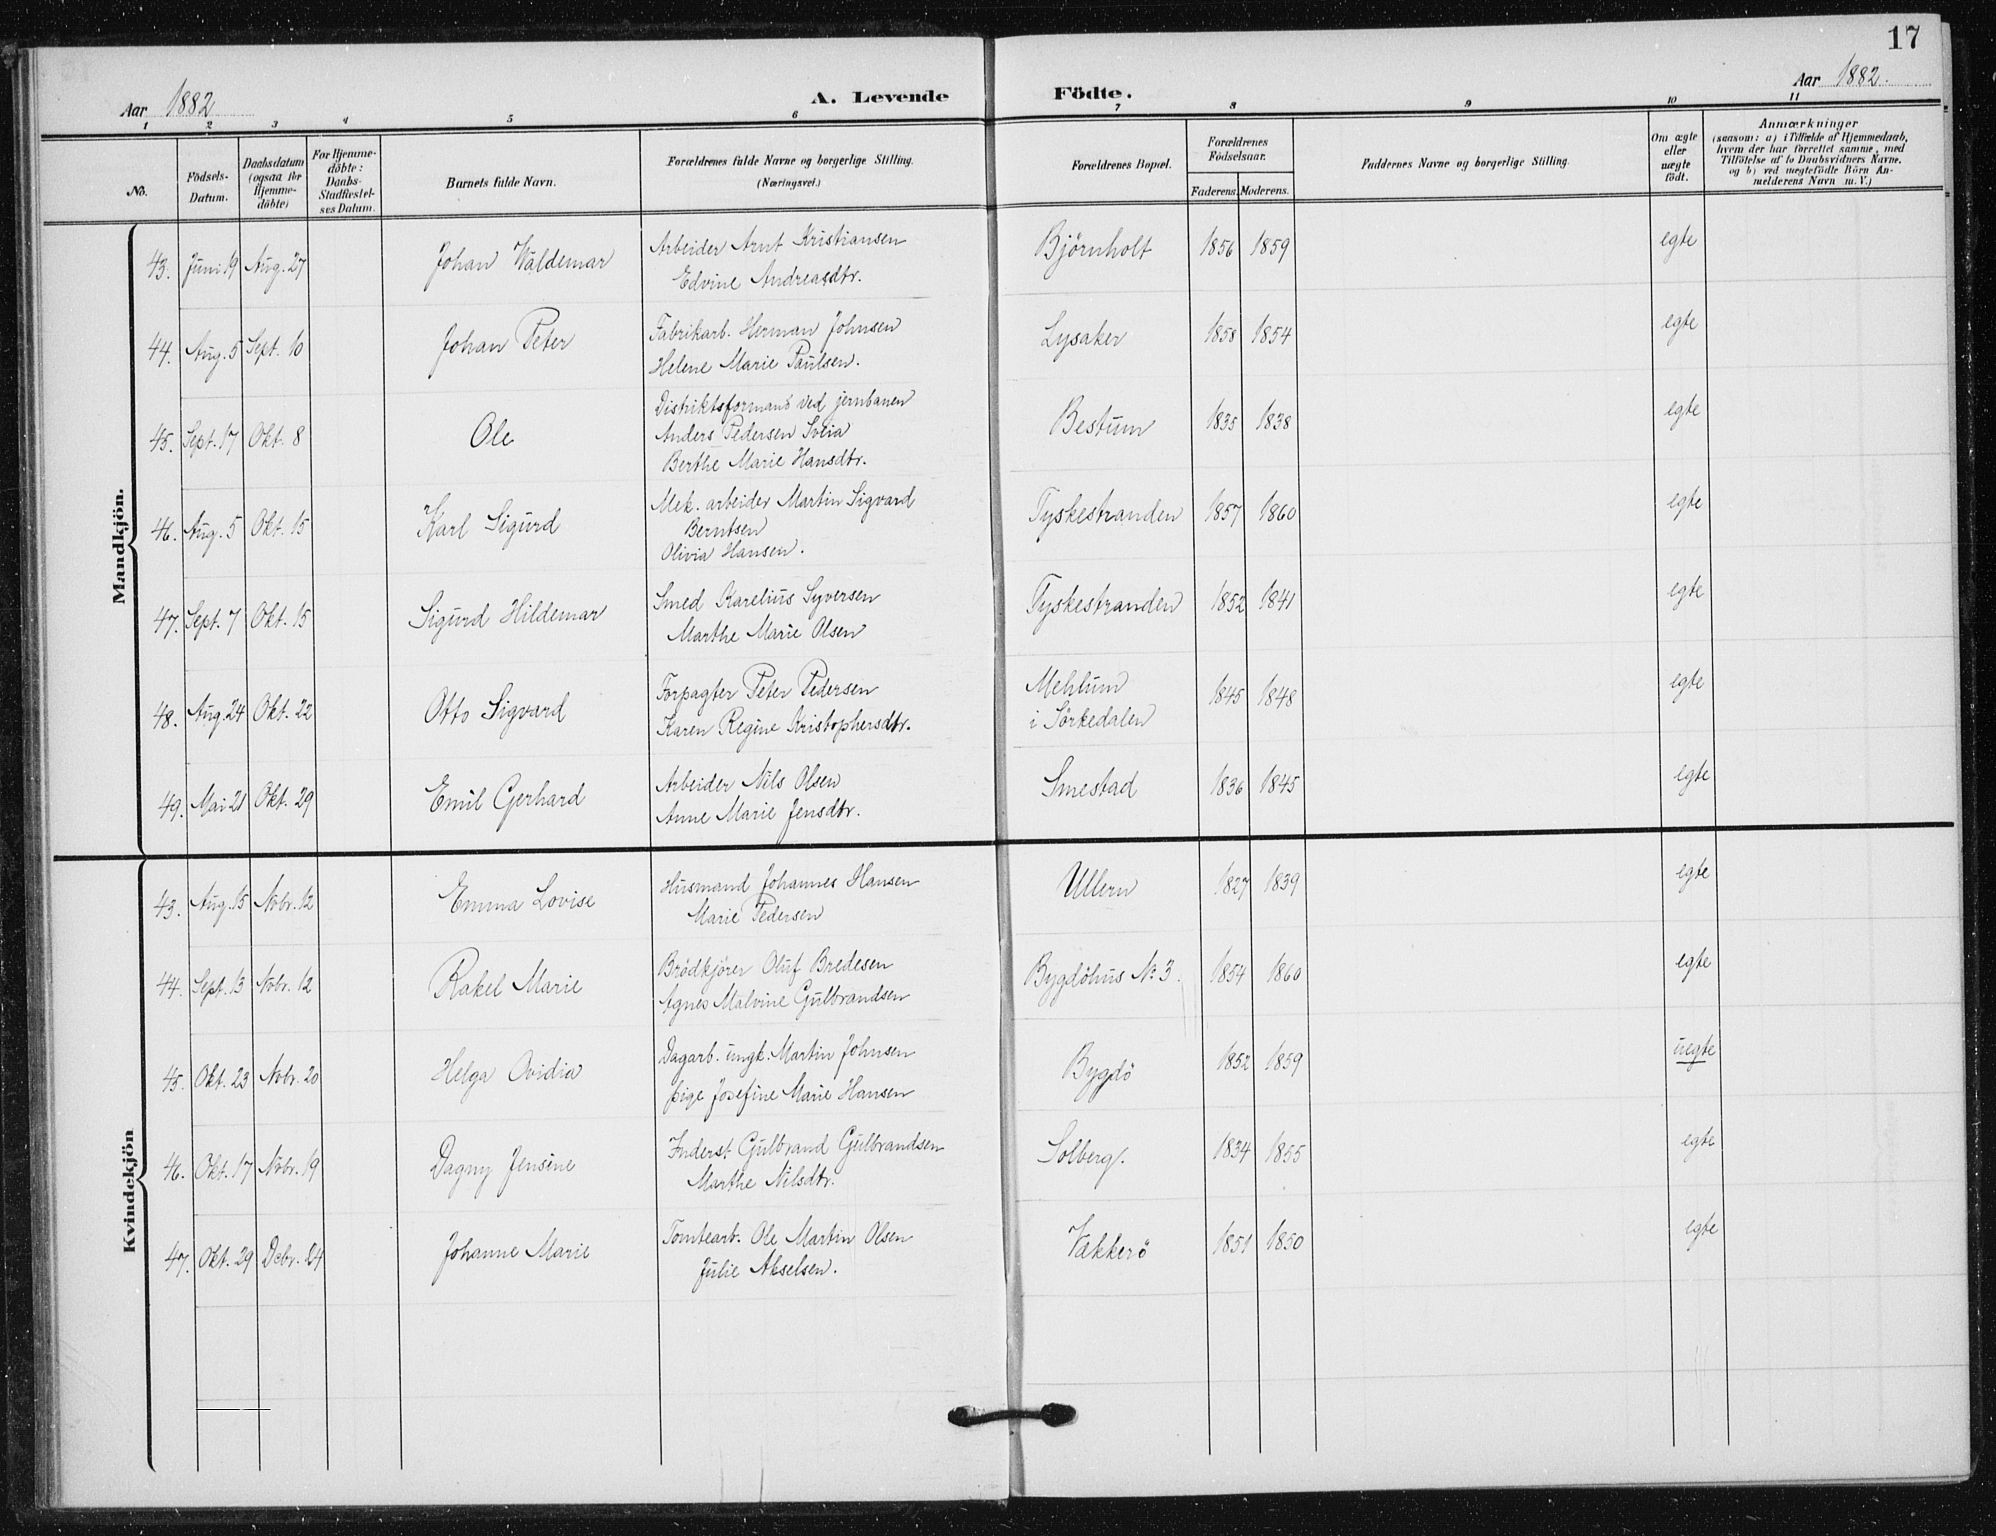 17
Aar 1882
A. Levende
Födte.
Aar 1882.
1 2 3 4 5 6 7 8 9 10 11
No.
Födsels-
Datum.
Daabsdatum
(ogsaa for
Hjemme-
döbte)
For Hjemme-
döbte:
Daabs-
Stadfæstel-
ses Datum.
Barnets fulde Navn.
Forældrenes fulde Navne og borgerlige Stilling.
(Næringsvei.)
Forældrenes Bopæl.
Forældrenes
Födselsaar.
Faderens. Moderens.
Faddernes Navne og borgerlige Stilling.
Om ægte
eller
uægte
födt.
Anmærkninger
(saasom: a) i Tilfælde af Hjemmedaab,
hvem der har forrettet samme, med
Tilföielse af to Daabsvidners Navne,
og b) ved uægtefödte Börn An-
melderens Navn m. V.)
Mandkjön.
43. Juni 19 Aug. 27 Johan Waldemar Arbeider Arnt Kristiansen
Edvine Andreasdtr. Björnholt 1856 1859 egte
44. Aug. 5 Sept. 10 Johan Peter Fabrikarb. Herman Johnsen
Helene Marie Paulsen. Lysaker 1858 1854 egte
45. Sept. 17 Okt. 8 Ole Distriktsformand ved jernbanen
Anders Pedersen Sveia
Berthe Marie Hansdtr. Bestum 1835 1838 egte
46. Aug. 5 Okt. 15 Karl Sigurd Mek. arbeider Martin Sigvard
Berntsen
Olivia Hansen. Tyskestranden 1857 1860 egte
47. Sept. 7 Okt. 15 Sigurd Hildemar Smed Karelius Syversen
Marthe Marie Olsen Tyskestranden 1852 1841 egte
48. Aug. 24 Okt. 22 Otto Sigvard Forpagter Peter Pedersen
Karen Regine Kristophersdtr. Mehlum
i Sörkedalen 1845 1848 egte
49. Mai 21 Okt. 29 Emil Gerhard Arbeider Nils Olsen
Anne Marie Jensdtr. Smestad 1836 1845 egte
Kvindekjön
43. Aug. 15 Nobr. 12 Emma Lovise Husmand Johannes Hansen
Marie Pedersen Ullern 1827 1839 egte
44. Sept. 13 Nobr. 12 Rakel Marie Brödkjörer Oluf Bredesen
Agnes Malvine Gulbrandsen Bygdöhus No. 3. 1854 1860 egte
45. Okt. 23 Nobr. 20 Helga Ovidia Dagarb. ungk. Martin Johnsen
pige Josefine Marie Hansen Bygdö 1852 1859 uegte
46. Okt. 17 Nobr. 19 Dagny Jensine Inderst Gulbrand Gulbrandsen
Marthe Nilsdtr. Solberg. 1834 1855 egte
47. Okt. 29 Debr. 24 Johanne Marie Tomtearb. Ole Martin Olsen
Julie Akselsen. Vækkerö 1851 1850 egte